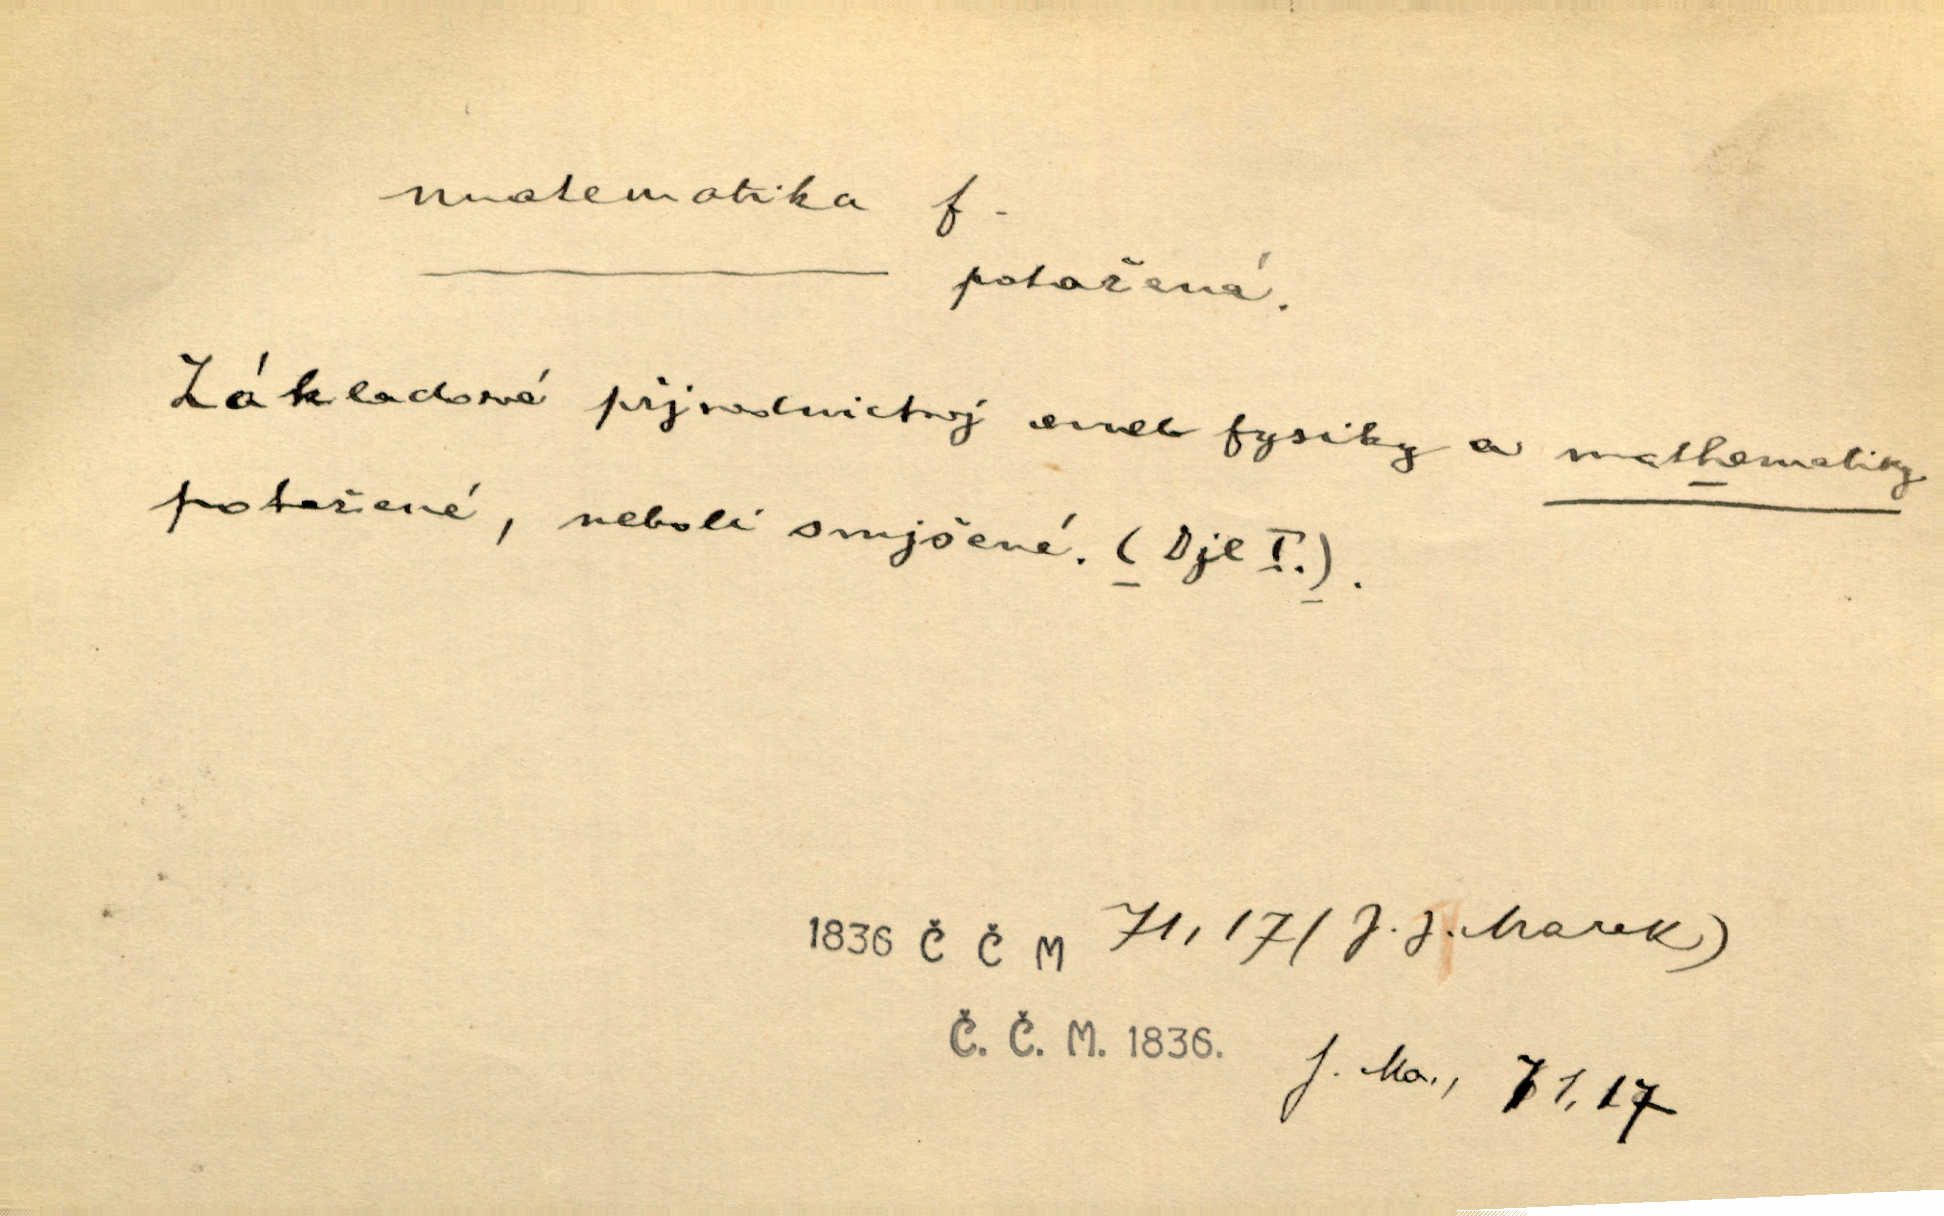 matematika f.
potažená.
Základové přjrodnictwj aneb fysiky a mathematiky
potažené, neboli smjšené. (Djl I.).
1836 Č Č M 71, 17 (J. J. Marek)
Č. Č. M. 1836. J. Ma., 71, 17